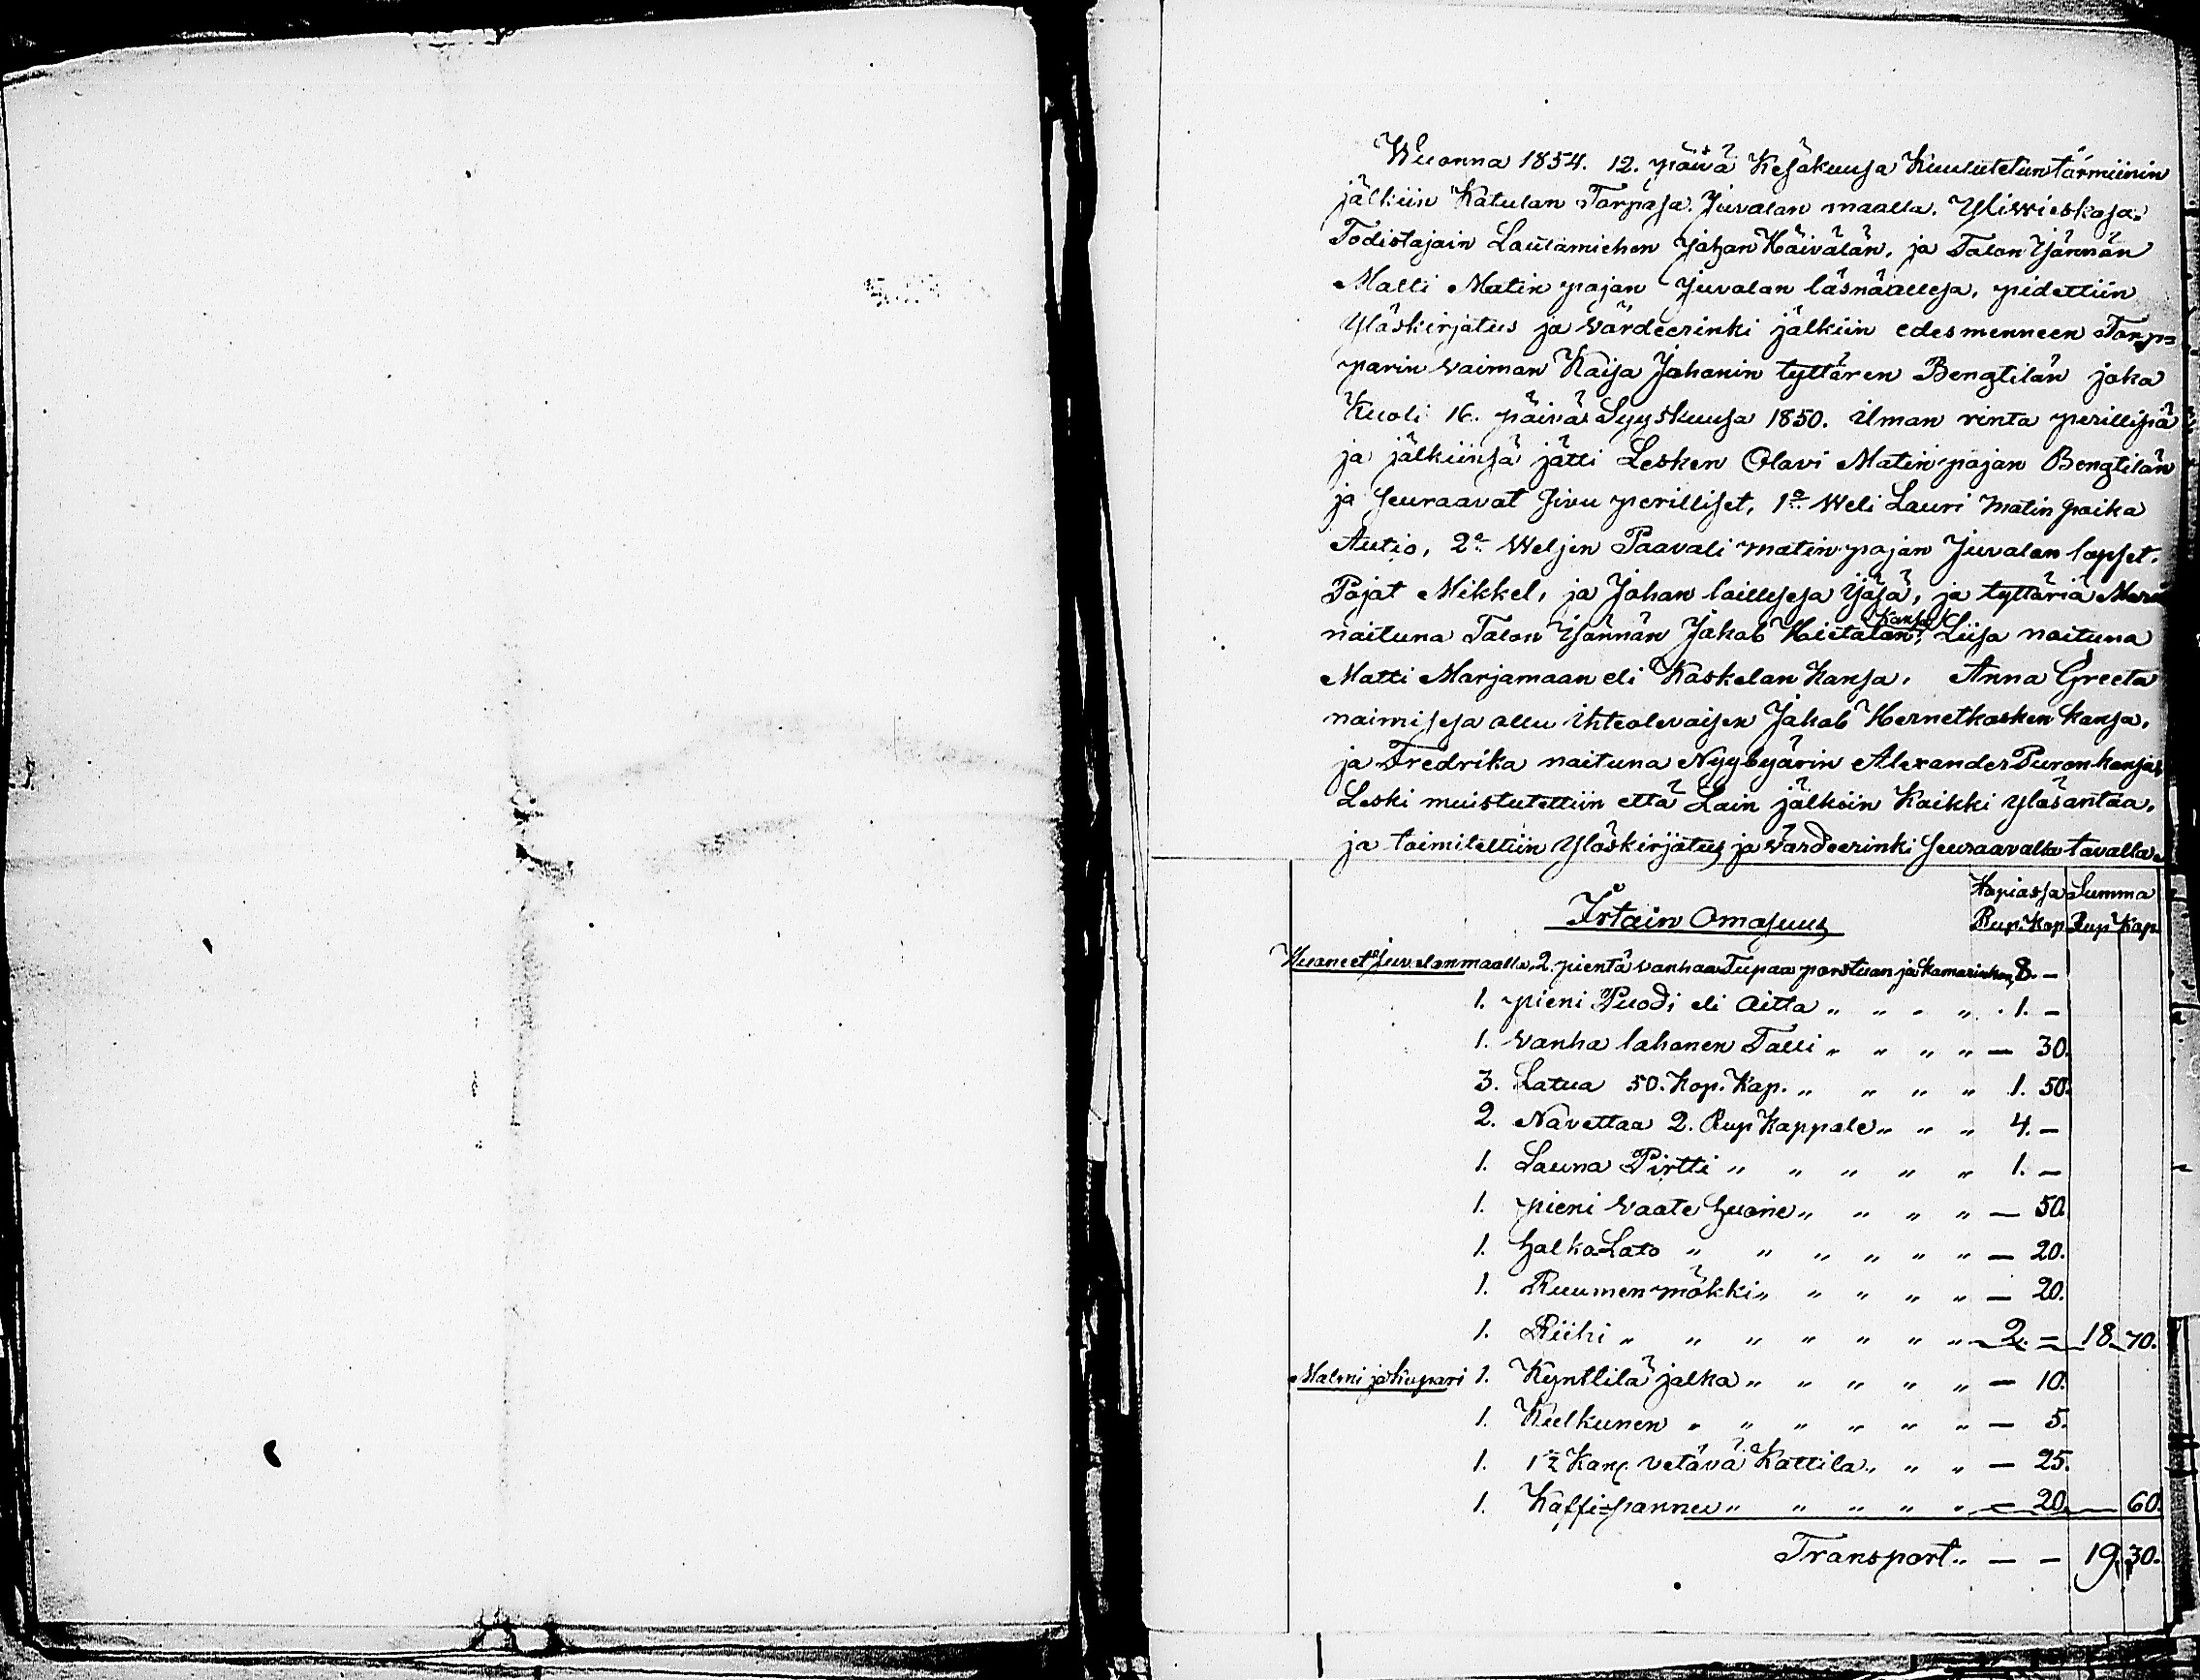 Wuonna 1854. 12. päivä Kesäkuusa Kuulutetun tärmiinin
jälkiin Katulan Torpasa. Juvolan maalla. Yliwieskasa.
Todistajain Lautamiehen Johan Häivälän, ja Talon Isännän
Malli Matin pojan Juvolan läsnäollesa, pidettiin
Yläskirjatus ja värdeerinki jälkiin edesmenneen Torp=
parin vaiman Kaisa Johanin tyttären Bengtilän joka
Kuoli 16. päivä Syyskuusa 1850. ilman rinta perillisiä
ja jälkiinsä jätti Lesken Olavi Matin pojan Bengtilän
ja seuraavat sivu perilliset, 1o Weli Lauri Matin poika
Autio, 2o Weljen Paavali Matin pojan Juvolan lapset.
Pojat Mikkel, ja Johan laillisesa ijäsä, ja tyttäriä Maria
naituna Talon Isännän Jakob Hietalan Kansa, Liisa naituna
Matti Marjamaan eli Kaskelan Kansa. Anna Greeta
naimisesa ollu ihteolevaisen Jakob Hernetkosken kansa,
ja Fredrika naituna Nyybyärin Alexander Puron kansa,
Leski muistutettiin että Lain jälkiin Kaikki yläsantaa,
ja toimitettiin Yläskirjatus ja värdeerinki seuraavalla tavalla.
Hopiassa Summa
Irtain Omasuus Rup. Kop. Rup Kop
Huoneet Juvolan maalla, 2. pientä vanhaa Tupaa porstuan ja Kamarin kans 8. –
1. pieni Puodi eli Aitta " " " " 1. –
1. Vanha lahonen Talli " " " " – 30.
3. Latua 50. Kop. Kap. " " " " 1. 50.
2. Navettaa 2. Rup Kappale " " " 4. –
1. Sauna Pirtti " " " " " 1. –
1. pieni vaate huone " " " " – 50.
1. halko Lato " " " " " " – 20.
1. Ruumen mökki " " " " " – 20.
1. Riihi " " " " " " " 2. – 18. 70.
Malmi ja Kupari 1. Kynttilä jalka " " " " " – 10.
1. Kulkunen " " " " " " – 5.
1. 1½ Kan. vetävä Kattila " " " – 25.
1. Kaffi=pannu " " " " " – 20. – 60.
Transport " – – 19. 30.